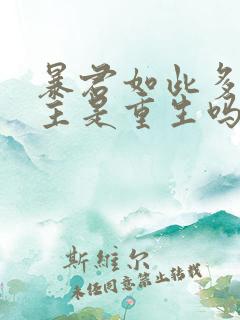 暴君如此多
主是重生吗
斯維尔
未经同意禁止转载